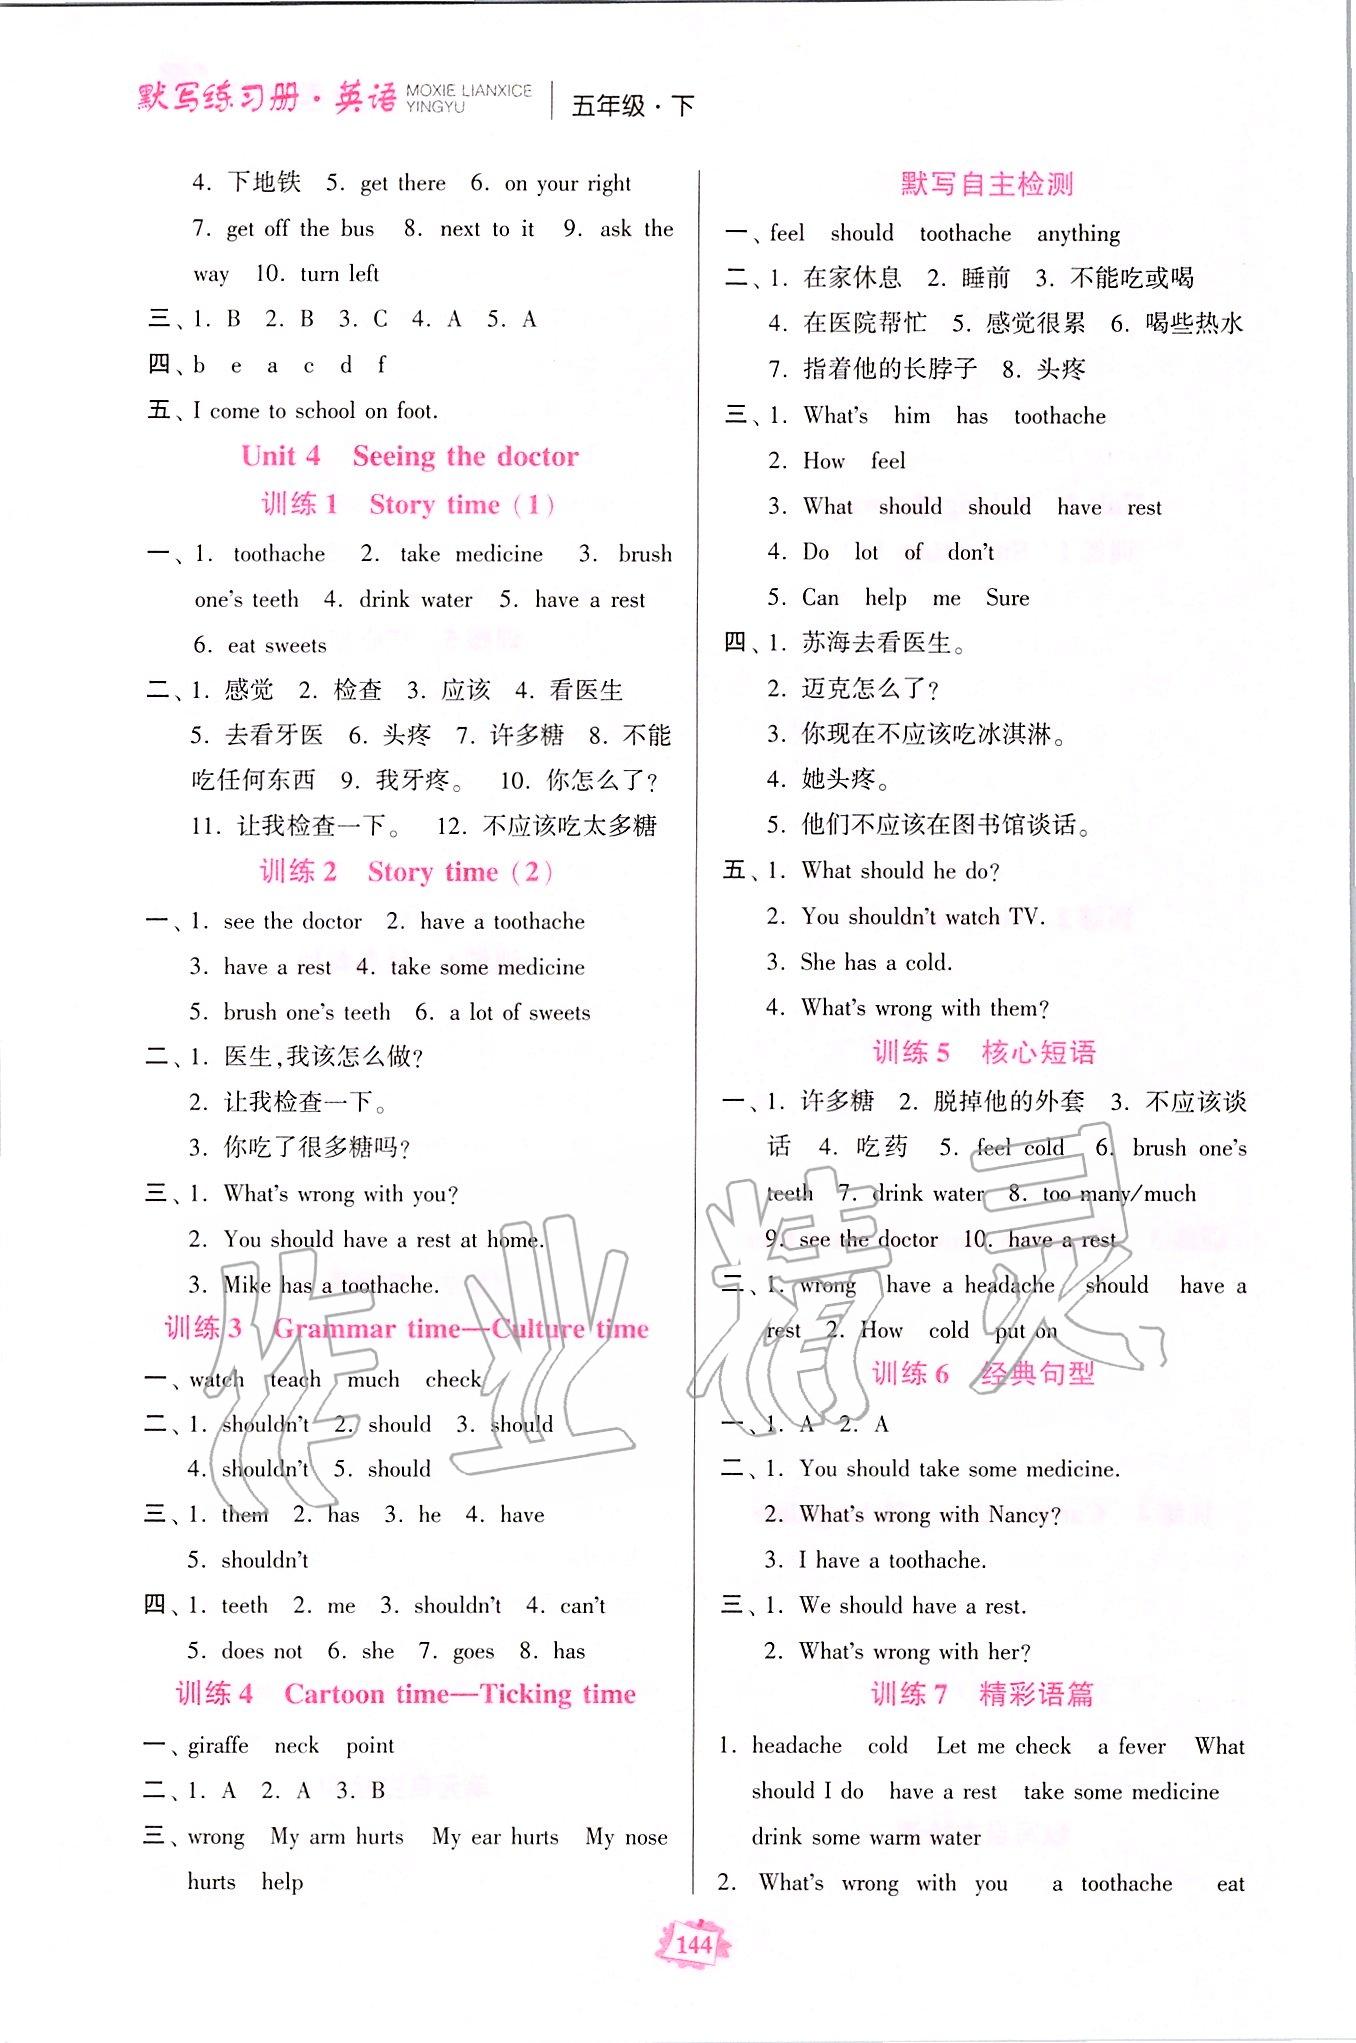 默写练习册·英语 MOXIE LIANXICE YINGYU 五年级·下
4. 下地铁 5. get there 6. on your right
7. get off the bus 8. next to it 9. ask the
way 10. turn left
三、1. B 2. B 3. C 4. A 5. A
四、b e a c d f
五、I come to school on foot.
Unit 4 Seeing the doctor
训练1 Story time (1)
一、1. toothache 2. take medicine 3. brush
one's teeth 4. drink water 5. have a rest
6. eat sweets
二、1. 感觉 2. 检查 3. 应该 4. 看医生
5. 去看牙医 6. 头疼 7. 许多糖 8. 不能
吃任何东西 9. 我牙疼。 10. 你怎么了?
11. 让我检查一下。 12. 不应该吃太多糖
训练2 Story time (2)
一、1. see the doctor 2. have a toothache
3. have a rest 4. take some medicine
5. brush one's teeth 6. a lot of sweets
二、1. 医生,我该怎么做?
2. 让我检查一下。
3. 你吃了很多糖吗?
三、1. What's wrong with you?
2. You should have a rest at home.
3. Mike has a toothache.
训练3 Grammar time—Culture time
一、watch teach much check
二、1. shouldn't 2. should 3. should
4. shouldn't 5. should
三、1. them 2. has 3. he 4. have
5. shouldn't
四、1. teeth 2. me 3. shouldn't 4. can't
5. does not 6. she 7. goes 8. has
训练4 Cartoon time—Ticking time
一、giraffe neck point
二、1. A 2. A 3. B
三、wrong My arm hurts My ear hurts My nose
hurts help
默写自主检测
一、feel should toothache anything
二、1. 在家休息 2. 睡前 3. 不能吃或喝
4. 在医院帮忙 5. 感觉很累 6. 喝些热水
7. 指着他的长脖子 8. 头疼
三、1. What's him has toothache
2. How feel
3. What should should have rest
4. Do lot of don't
5. Can help me Sure
四、1. 苏海去看医生。
2. 迈克怎么了?
3. 你现在不应该吃冰淇淋。
4. 她头疼。
5. 他们不应该在图书馆谈话。
五、1. What should he do?
2. You shouldn't watch TV.
3. She has a cold.
4. What's wrong with them?
训练5 核心短语
一、1. 许多糖 2. 脱掉他的外套 3. 不应该谈
话 4. 吃药 5. feel cold 6. brush one's
teeth 7. drink water 8. too many/much
9. see the doctor 10. have a rest
二、1. wrong have a headache should have a
rest 2. How cold put on
训练6 经典句型
一、1. A 2. A
二、1. You should take some medicine.
2. What's wrong with Nancy?
3. I have a toothache.
三、1. We should have a rest.
2. What's wrong with her?
训练7 精彩语篇
1. headache cold Let me check a fever What
should I do have a rest take some medicine
drink some warm water
2. What's wrong with you a toothache eat
144
作业精灵